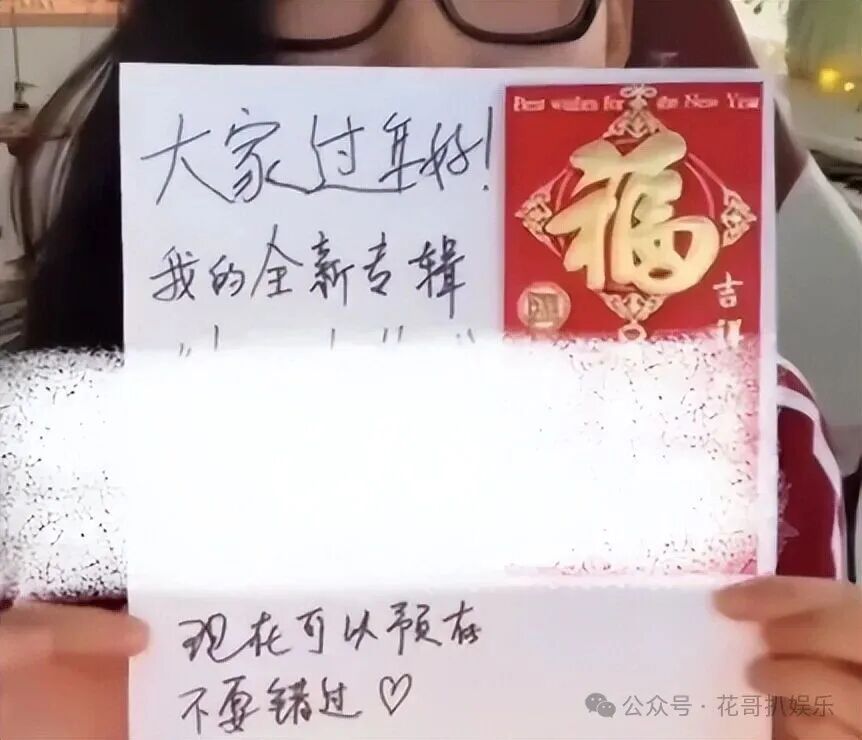 大家过年好!
我的全新专辑
Best wishes for the New Year
福
吉祥
现在可以预存
不要错过♡
公众号·花哥扒娱乐